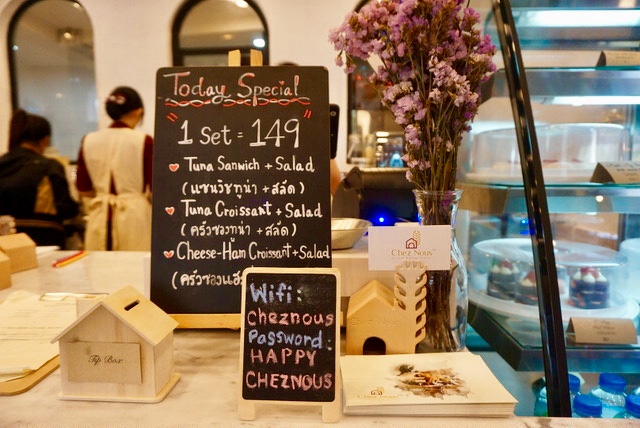 Today Special
1 Set = 149
Tuna Sanwich + Salad
(แซนวิชทูน่า + สลัด)
Tuna Croissant + Salad
(ครัวซองทูน่า + สลัด)
Cheese-Ham Croissant + Salad
(ครัวซองแฮม
Wifi:
Cheznous
Password:
HAPPY
CHEZNOUS
Chez Nous
Tip Box